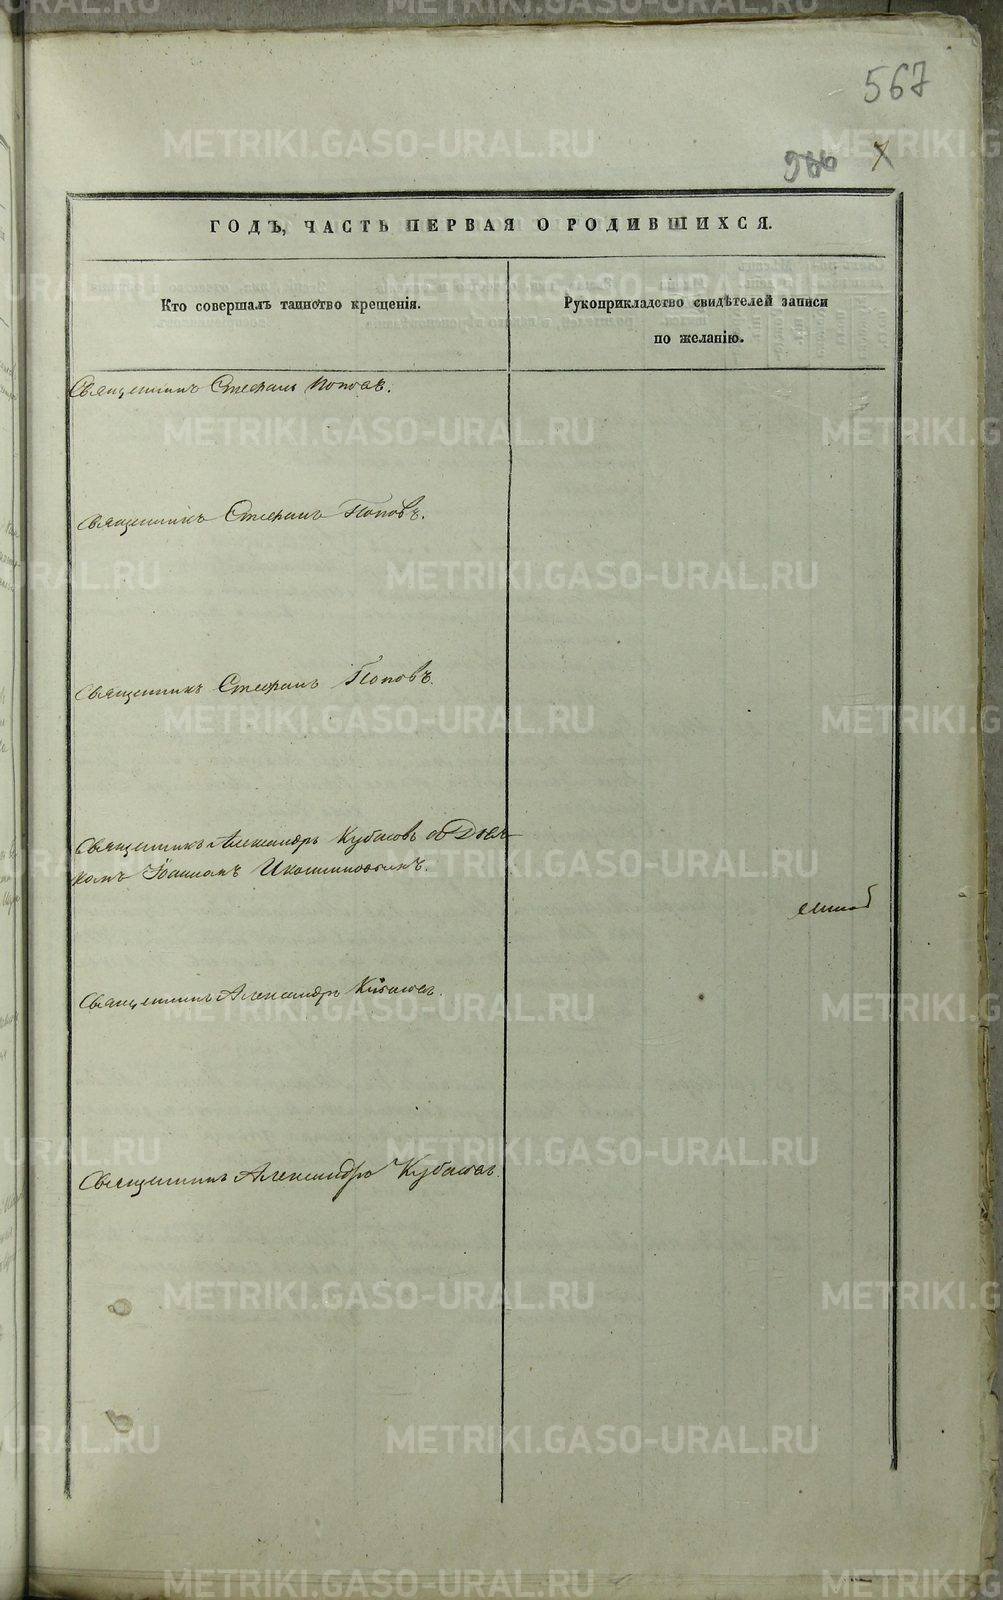 567
966
ГОДЪ, ЧАСТЬ ПЕРВАЯ О РОДИВШИХСЯ.
Кто совершалъ таинство крещенія.
Рукоприкладство свидѣтелей записи
по желанію.
Священникъ Стефанъ Поповъ.
Священникъ Стефанъ Поповъ.
Священникъ Стефанъ Поповъ.
Священникъ Александръ Кубасовъ съ Дьяч-
комъ Іоанномъ
Священникъ Александръ Кубасовъ.
Священникъ Александръ Кубасовъ.
METRIKI.GASO-URAL.RU